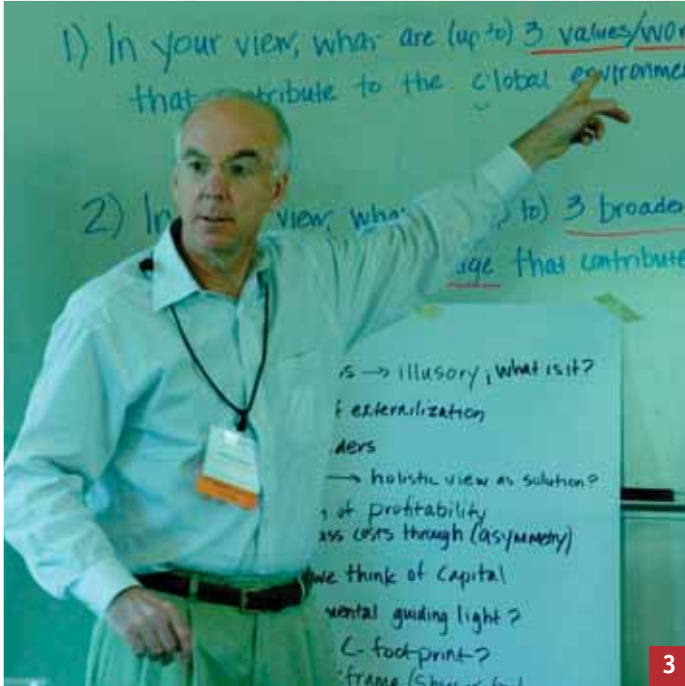 1) In your view, what are (up to) 3 values/wor
that contribute to the global environme
2) In view, wha to) 3 broader
age that contribute
s → illusory, what is it?
f externilization
ders
→ holistic view as solution?
of profitability
ass costs through (asymmetry)
we think of capital
mental guiding light?
C-footprint?
frame
3